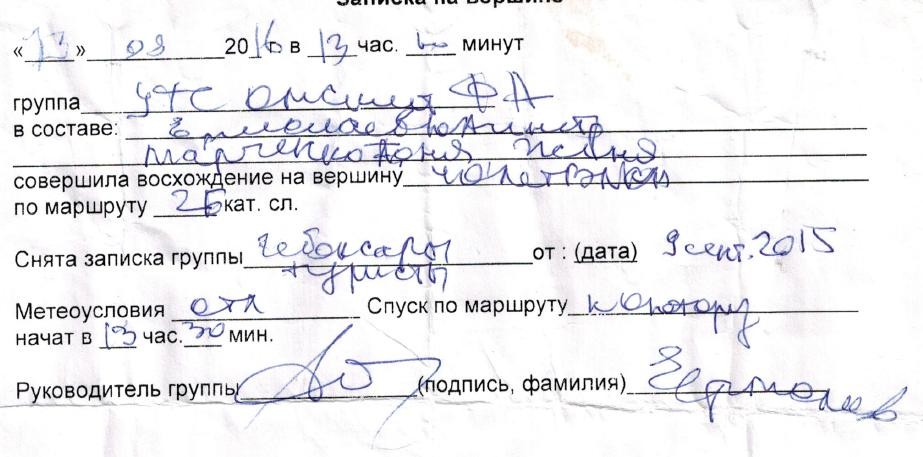 Записка на вершине
«13» 08 2016 в 13 час. минут
группа УТС ФА
в составе: Ермолаев
Марченко Женя
совершила восхождение на вершину
по маршруту 2Б кат. сл.
Снята записка группы Чебоксары от : (дата) 9 сент. 2015
туристы
Метеоусловия отл Спуск по маршруту
начат в 13 час. 30 мин.
Руководитель группы (подпись, фамилия) Ермолаев